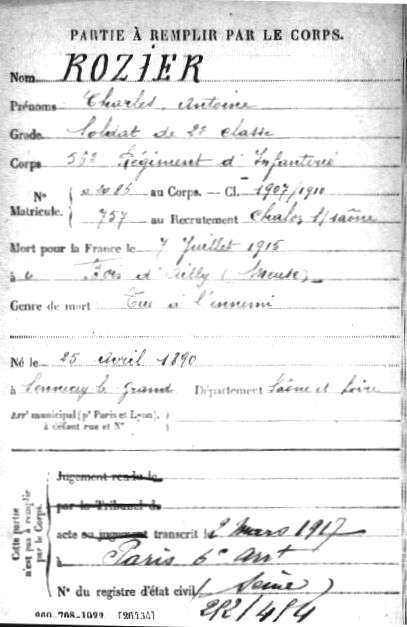 PARTIE À REMPLIR PAR LE CORPS.
Nom ROZIER
Prénoms Charles Antoine
Grade Soldat de 2e classe
Corps Régiment d'Infanterie
N° Matricule. au Corps. — Cl. 1907/1910
757 au Recrutement Chalon s/ Saône
Mort pour la France le 7 Juillet 1915
à Bois d'Ailly (Meuse)
Genre de mort Tué à l'ennemi
Né le 25 avril 1890
à Sennecey le Grand Département Saône et Loire
Arrt municipal (pr Paris et Lyon),
à défaut rue et N°
Cette partie n'est pas à remplir par le Corps.
Jugement rendu le
par le Tribunal de
acte ou jugement transcrit le 2 mars 1917
à Paris 6e arrt
(Seine)
N° du registre d'état civil 212/414
960-708-1022. [26434]